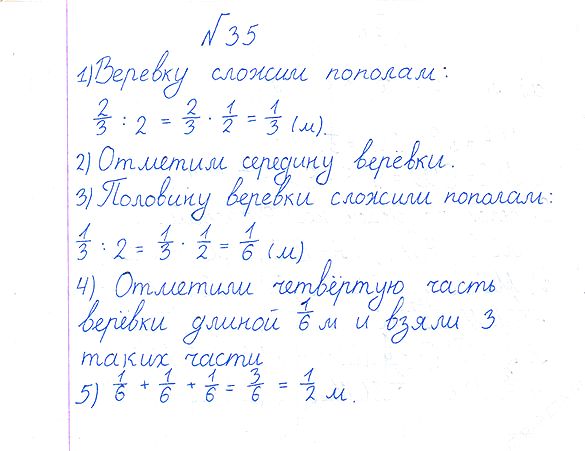 № 35
1) Веревку сложим пополам:
2/3 : 2 = 2/3 · 1/2 = 1/3 (м).
2) Отметим середину верёвки.
3) Половину веревки сложили пополам:
1/3 : 2 = 1/3 · 1/2 = 1/6 (м)
4) Отметили четвёртую часть
верёвки длиной 1/6 м и взяли 3
таких части
5) 1/6 + 1/6 + 1/6 = 3/6 = 1/2 м.